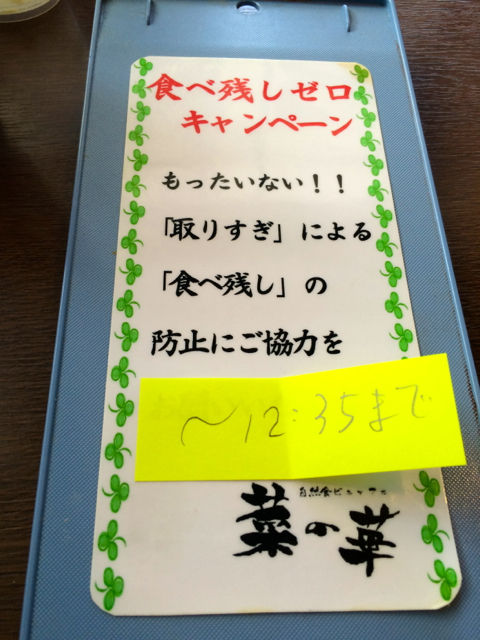 食べ残しゼロ
キャンペーン
もったいない！！
「取りすぎ」による
「食べ残し」の
防止にご協力を
～12:35まで
自然食ビュッフェ
菜の華